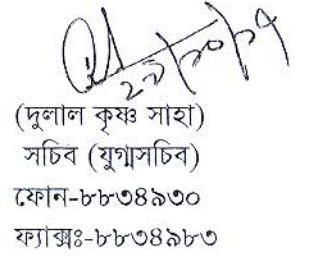 ২৯/১০/১৭
(দুলাল কৃষ্ণ সাহা)
সচিব (যুগ্মসচিব)
ফোন-৮৮৩৪৯৩০
ফ্যাক্সঃ-৮৮৩৪৯৮৩